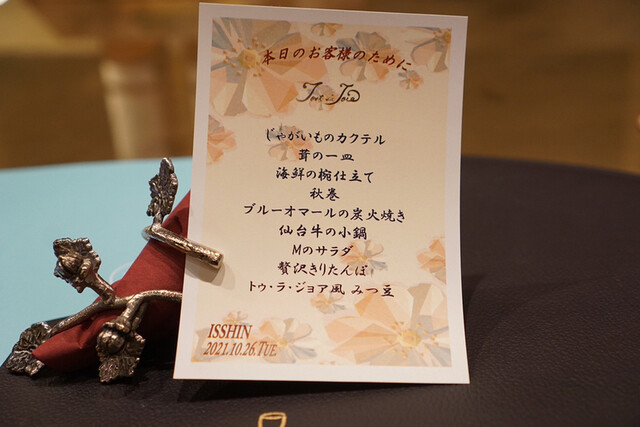 本日のお客様のために
じゃがいものカクテル
茸の一皿
海鮮の椀仕立て
秋巻
ブルーオマールの炭火焼き
仙台牛の小鍋
Mのサラダ
贅沢きりたんぽ
トゥ・ラ・ジョア風 みつ豆
ISSHIN
2021.10.26.TUE